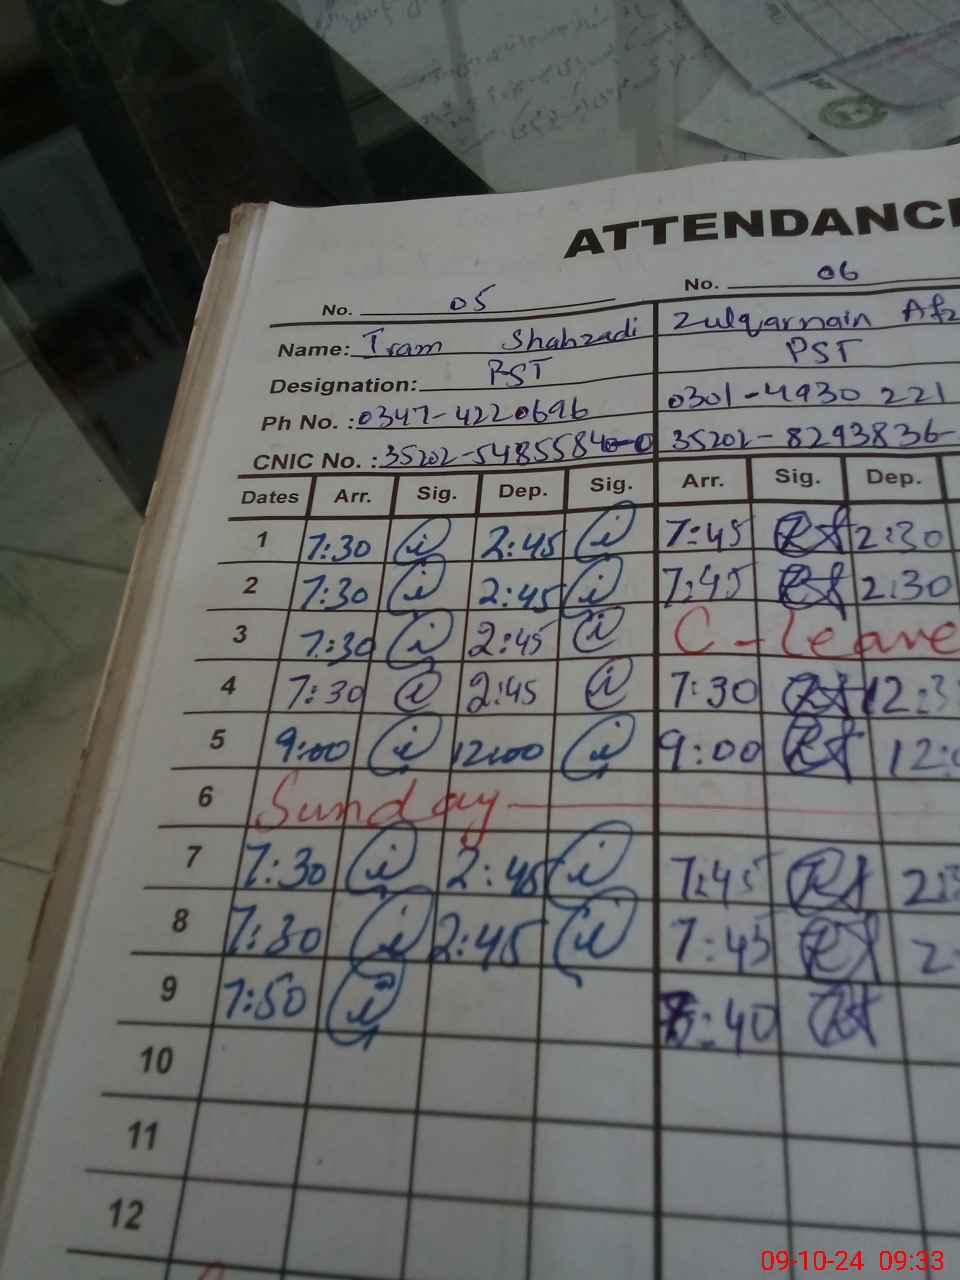 ATTENDANC
No. 05 No. 06
Name: Iram Shahzadi Zulqarnain Afz
Designation: PST PST
Ph No. : 0347-4220696 0301-4930 221
CNIC No. : 35202-5485584-0 35202-8293836-
Dates Arr. Sig. Dep. Sig. Arr. Sig. Dep.
1 7:30 2:45 7:45 2:30
2 7:30 2:45 7:45 2:30
3 7:30 2:45 C-Leave
4 7:30 2:45 7:30 12:3
5 9:00 12:00 9:00 12:0
6 Sunday
7 7:30 2:45 7:45 2:3
8 7:30 2:45 7:45 2:
9 7:50 :40
10
11
12
09-10-24 09:33